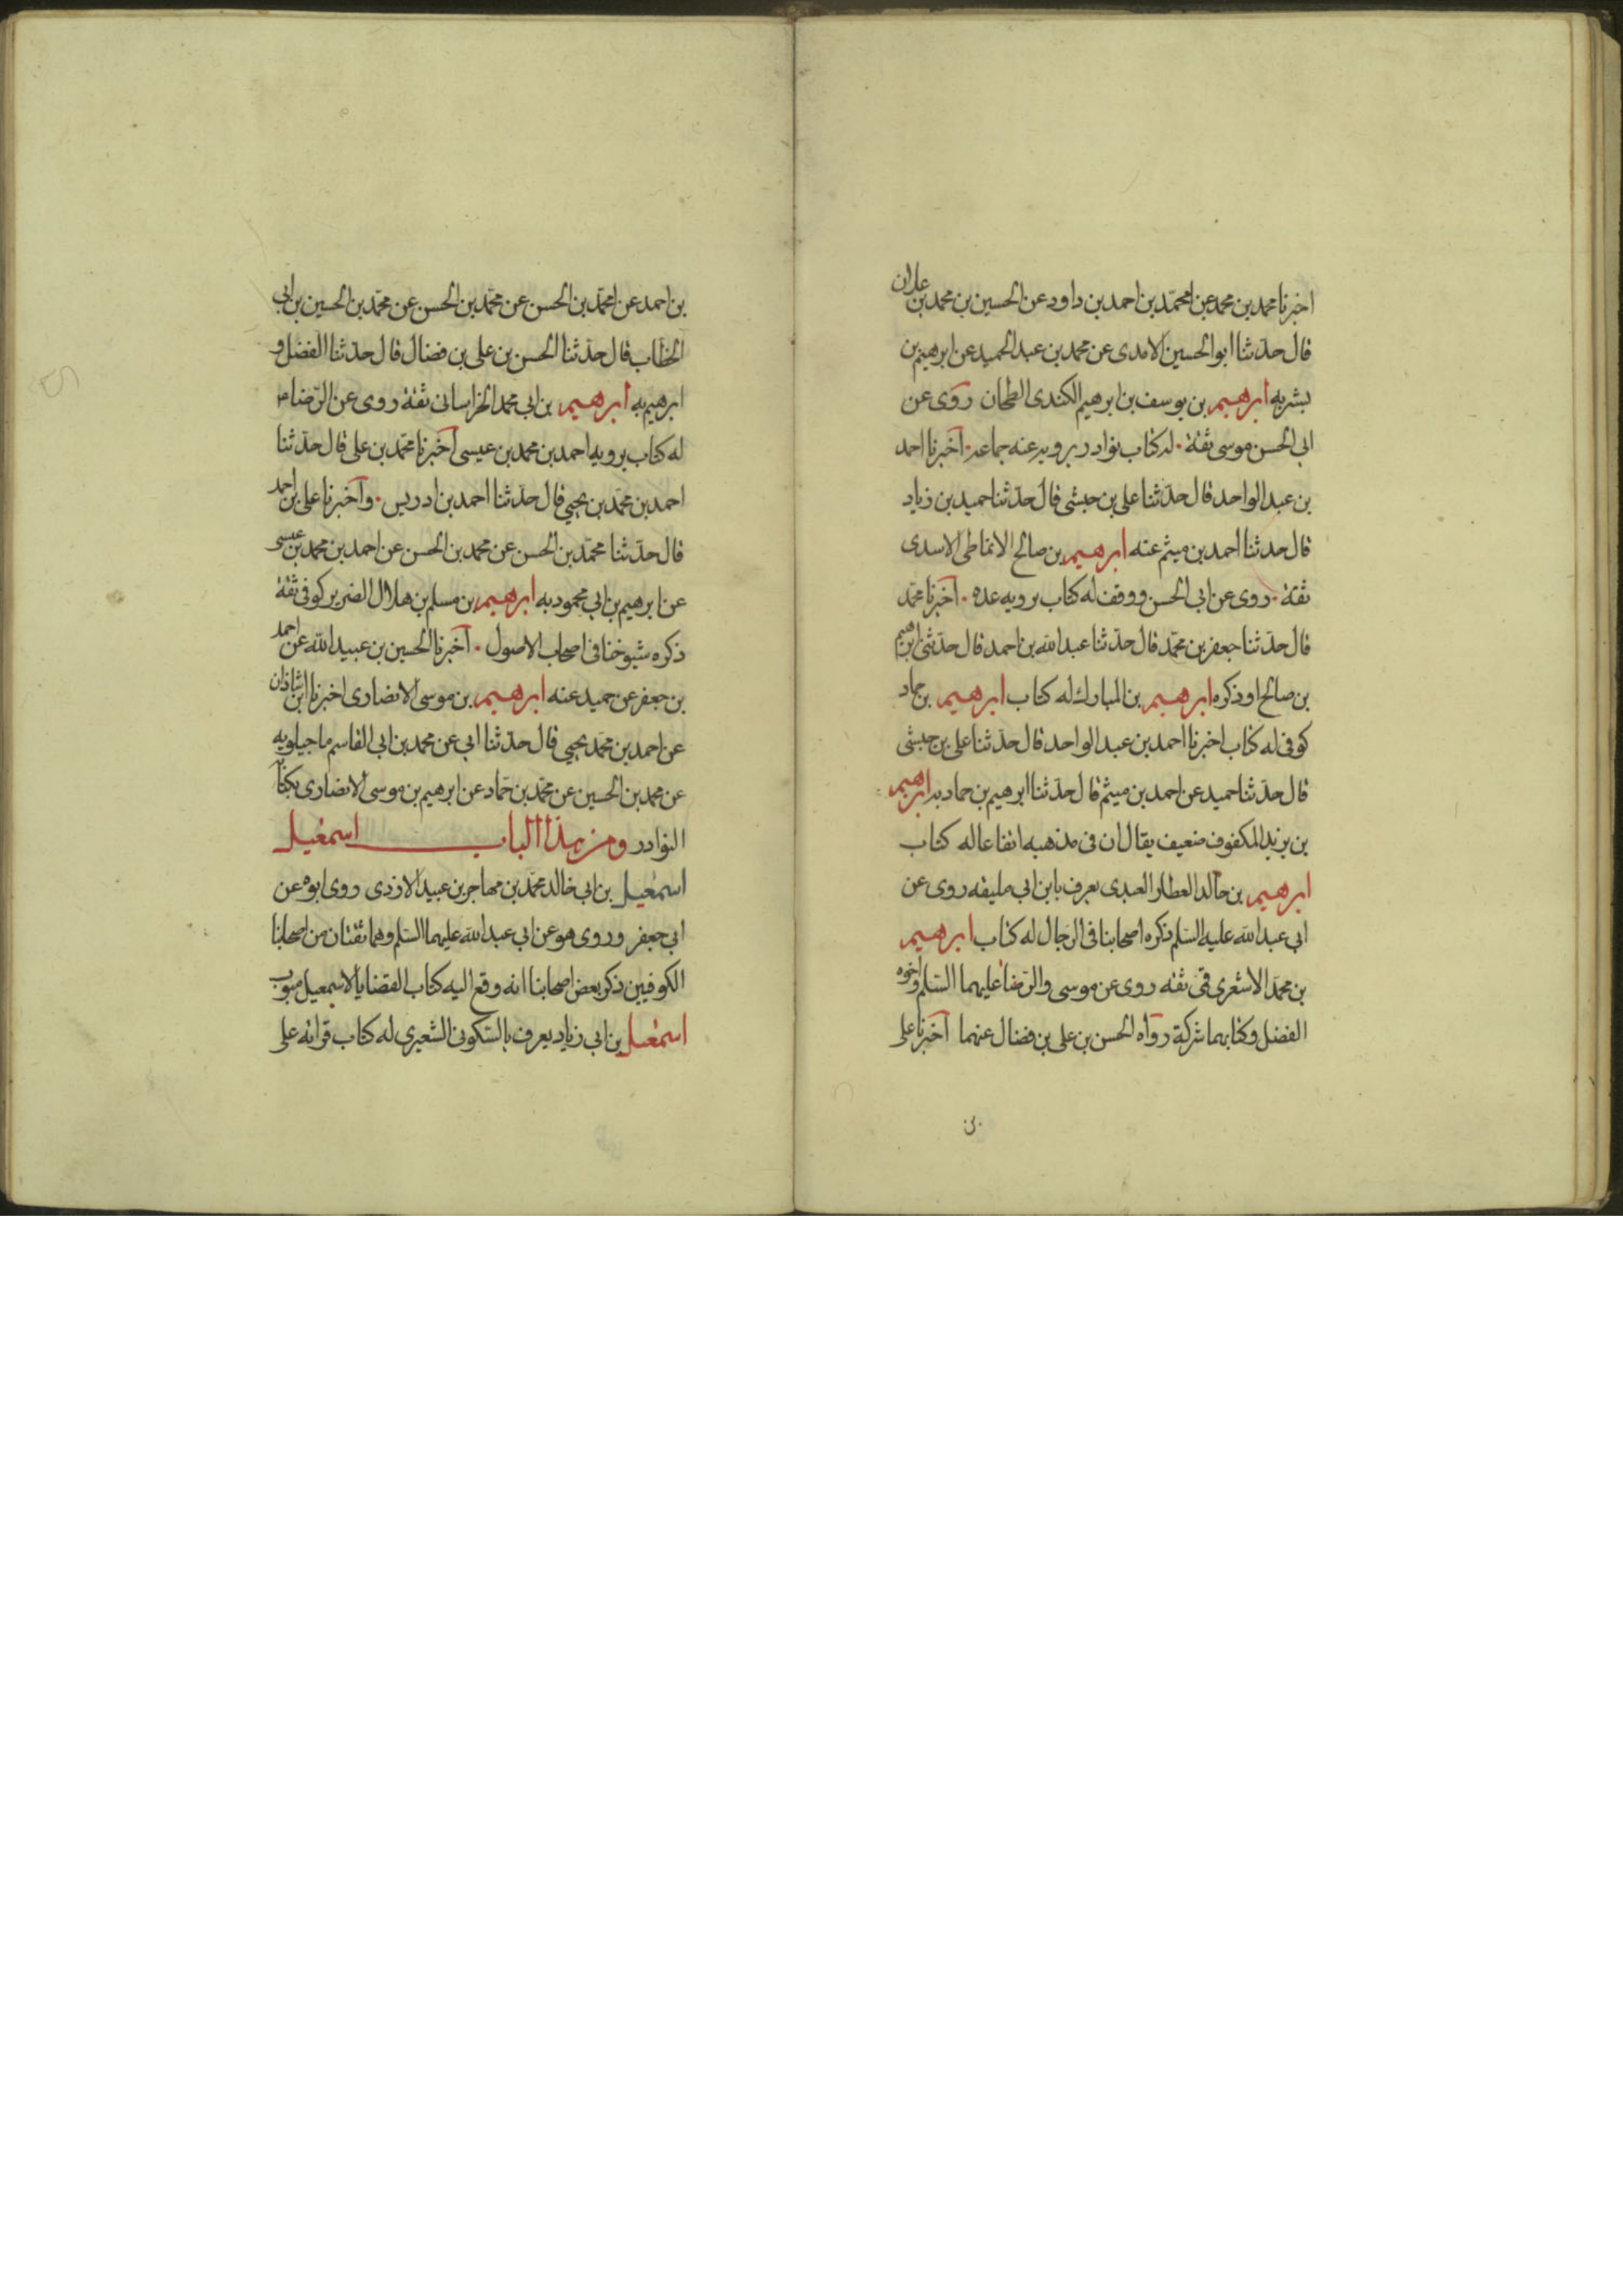 اخبرنا محمد بن محمد عن محمد بن احمد بن داود عن الحسين بن محمد بن علان
قال حدثنا ابو الحسين الامدى عن محمد بن عبد الحميد عن ابرهيم بن
بشر به ابرهيم بن يوسف بن ابرهيم الكندى الطحان روى عن
ابى الحسن موسى ثقة له كتاب نوادر يرويه عنه جماعة اخبرنا احمد
بن عبد الواحد قال حدثنا على بن حبشى قال حدثنا حميد بن زياد
قال حدثنا احمد بن ميثم عنه ابرهيم بن صالح الانماطى الاسدى
ثقة روى عن ابى الحسن ووقف له كتاب يرويه عده اخبرنا محمد
قال حدثنا جعفر بن محمد قال حدثنا عبد الله بن احمد قال حدثنى ابرهيم
بن صالح اوذكره ابرهيم بن المبارك له كتاب ابرهيم بن حماد
كوفى له كتاب اخبرنا احمد بن عبد الواحد قال حدثنا على بن حبشى
قال حدثنا حميد عن احمد بن ميثم قال حدثنا ابرهيم بن حماد به ابرهيم
بن يزيد المكفوف ضعيف يقال ان فى مذهبه ارتفاعا له كتاب
ابرهيم بن خالد العطار العبدى يعرف بابن ابى مليقه روى عن
ابى عبد الله عليه السلم ذكره اصحابنا فى الرجال له كتاب ابرهيم
بن محمد الاشعرى قمى ثقه روى عن موسى والرضا عليهما السلم واخوه
الفضل وكتابهما شركة رواه الحسن بن على بن فضال عنهما اخبرنا على
بن
بن احمد عن محمد بن الحسن عن محمد بن الحسن عن محمد بن الحسين بن ابى
الخطاب قال حدثنا الحسن بن على بن فضال قال حدثنا الفضل و
ابرهيم به ابرهيم بن ابى محمد الخراسانى ثقة روى عن الرضا
له كتاب يرويه احمد بن محمد بن عيسى اخبرنا محمد بن على قال حدثنا
احمد بن محمد بن يحيى قال حدثنا احمد بن ادريس واخبرنا على بن احمد
قال حدثنا محمد بن الحسن عن محمد بن الحسن عن احمد بن محمد بن عيسى
عن ابرهيم بن ابى محمود به ابرهيم بن مسلم بن هلال الضرير كوفى ثقة
ذكره شيوخنا فى اصحاب الاصول اخبرنا الحسين بن عبيد الله عن احمد
بن جعفر عن حميد عنه ابرهيم بن موسى الانصارى اخبرنا ابن شاذان
عن احمد بن محمد يحيى قال حدثنا ابى عن محمد بن ابى القاسم ماجيلويه
عن محمد بن الحسين عن محمد بن حماد عن ابرهيم بن موسى الانصارى بكتاب
النوادر ومن هذا الباب اسمعيل
اسمعيل بن ابى خالد محمد بن مهاجر بن عبيد الازدى روى ابوه عن
ابى جعفر وروى هو عن ابى عبد الله عليهما السلم وهما ثقتان من اصحابنا
الكوفيين ذكر بعض اصحابنا انه وقع اليه كتاب القضايا لاسمعيل مبوب
اسمعيل بن ابى زياد يعرف بالسكونى الشعيرى له كتاب قراته على